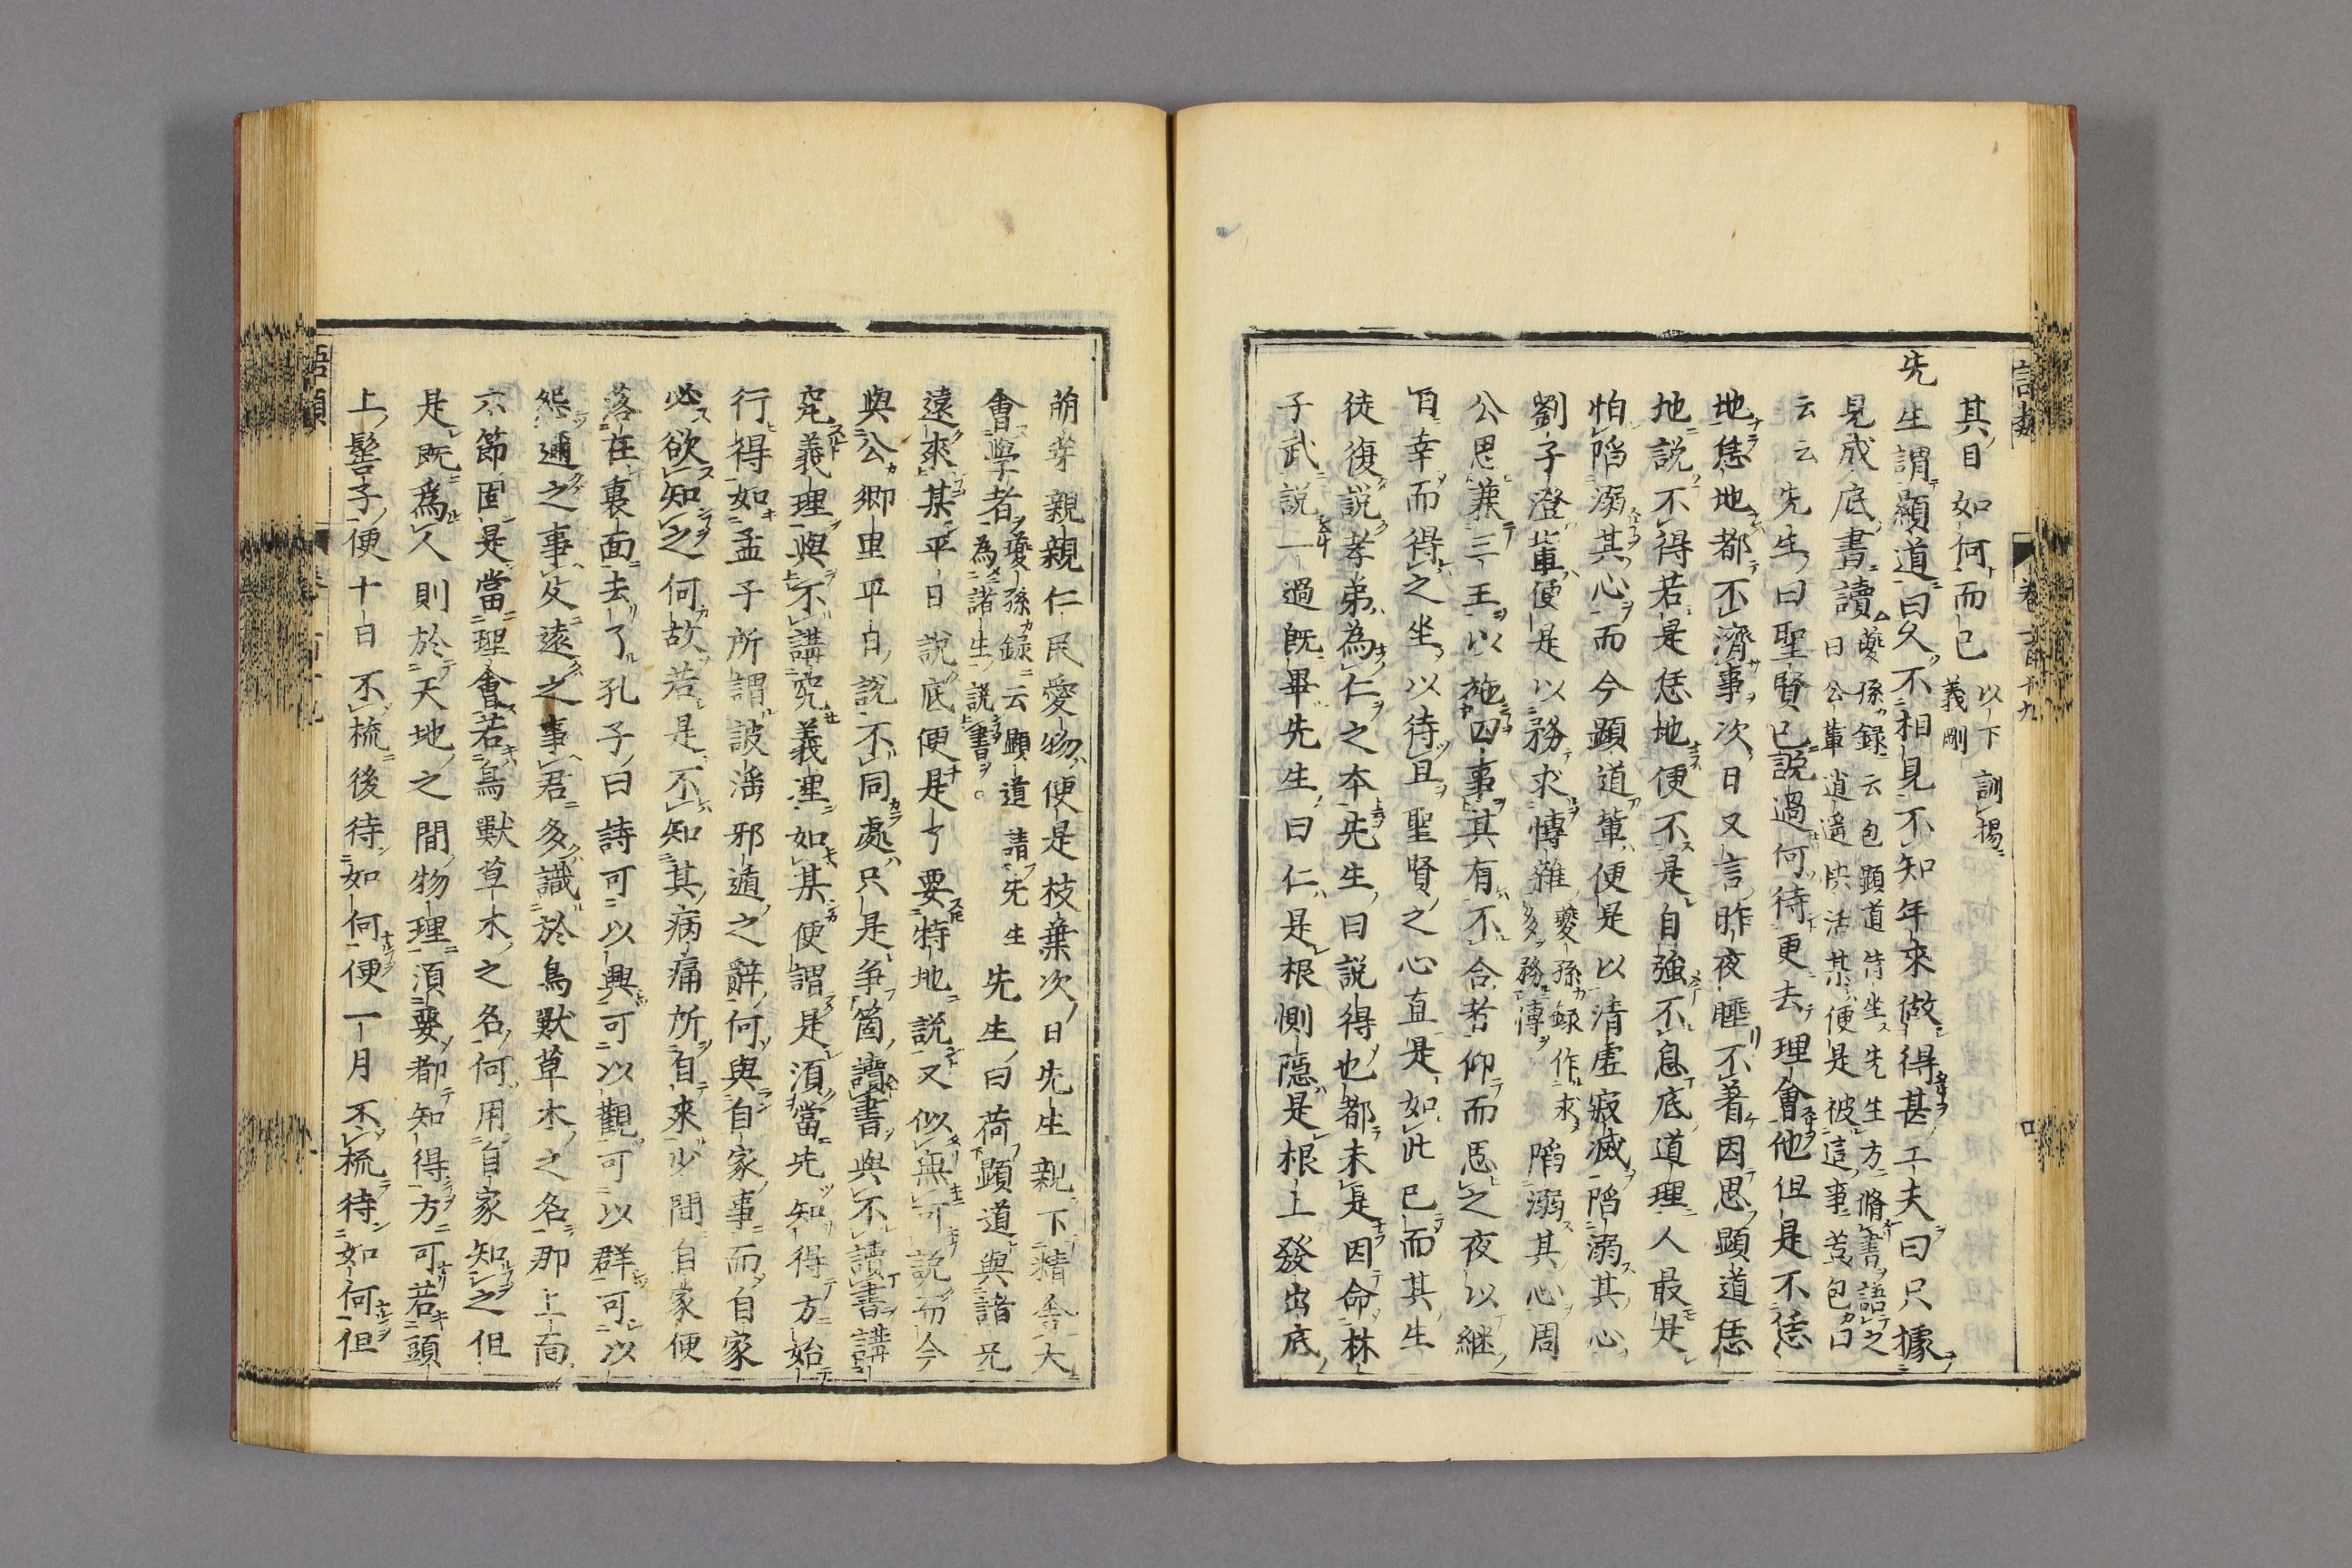 其目如何而已以下訓揚義剛
先生謂顯道曰久不相見不知年來做得甚工夫曰只據
見成底書讀夔孫錄云包顯道侍坐先生方脩書語之曰公輩逍遙快活某便是被這事苦包曰
云云先生曰聖賢已說過何待更去理會他但是不恁
地恁地都不濟事次日又言昨夜睡不著因思顯道恁
地說不得若是恁地便不是自強不息底道理人最是
怕陷溺其心而今顯道輩便是以清虛寂滅陷溺其心
劉子澄輩便是以務求慱雜夔孫錄作求多務慱陷溺其心周
公思兼三王以施四事其有不合者仰而思之夜以継
日幸而得之坐以待旦聖賢之心直是如此已而其生
徒復說孝弟為仁之本先生曰說得也都未是因命林
子武說一過既畢先生曰仁是根惻隠是根上發出底
萌芽親親仁民愛物便是枝葉次日先生親下精舍大
會學者夔孫錄云顯道請先生為諸生說書。先生曰荷顯道與諸兄
遠來某平日說底便是了要特地說又似無可說而今
與公鄉里平日說不同處只是爭箇讀書與不讀書講
究義理與不講究義理如某便謂是須當先知得方始
行得如孟子所謂詖淫邪遁之辭何與自家事而自家
必欲知之何故若是不知其病痛所自來少間自家便
落在裏面去了孔子曰詩可以興可以觀可以群可以
怨邇之事父遠之事君多識於鳥獸草木之名那上面
六節固是當理會若鳥獸草木之名何用自家知之但
是既為人則於天地之間物理須要都知得方可若頭
上髻子便十日不梳後待如何便一月不梳待如何但
語類
卷一百十九